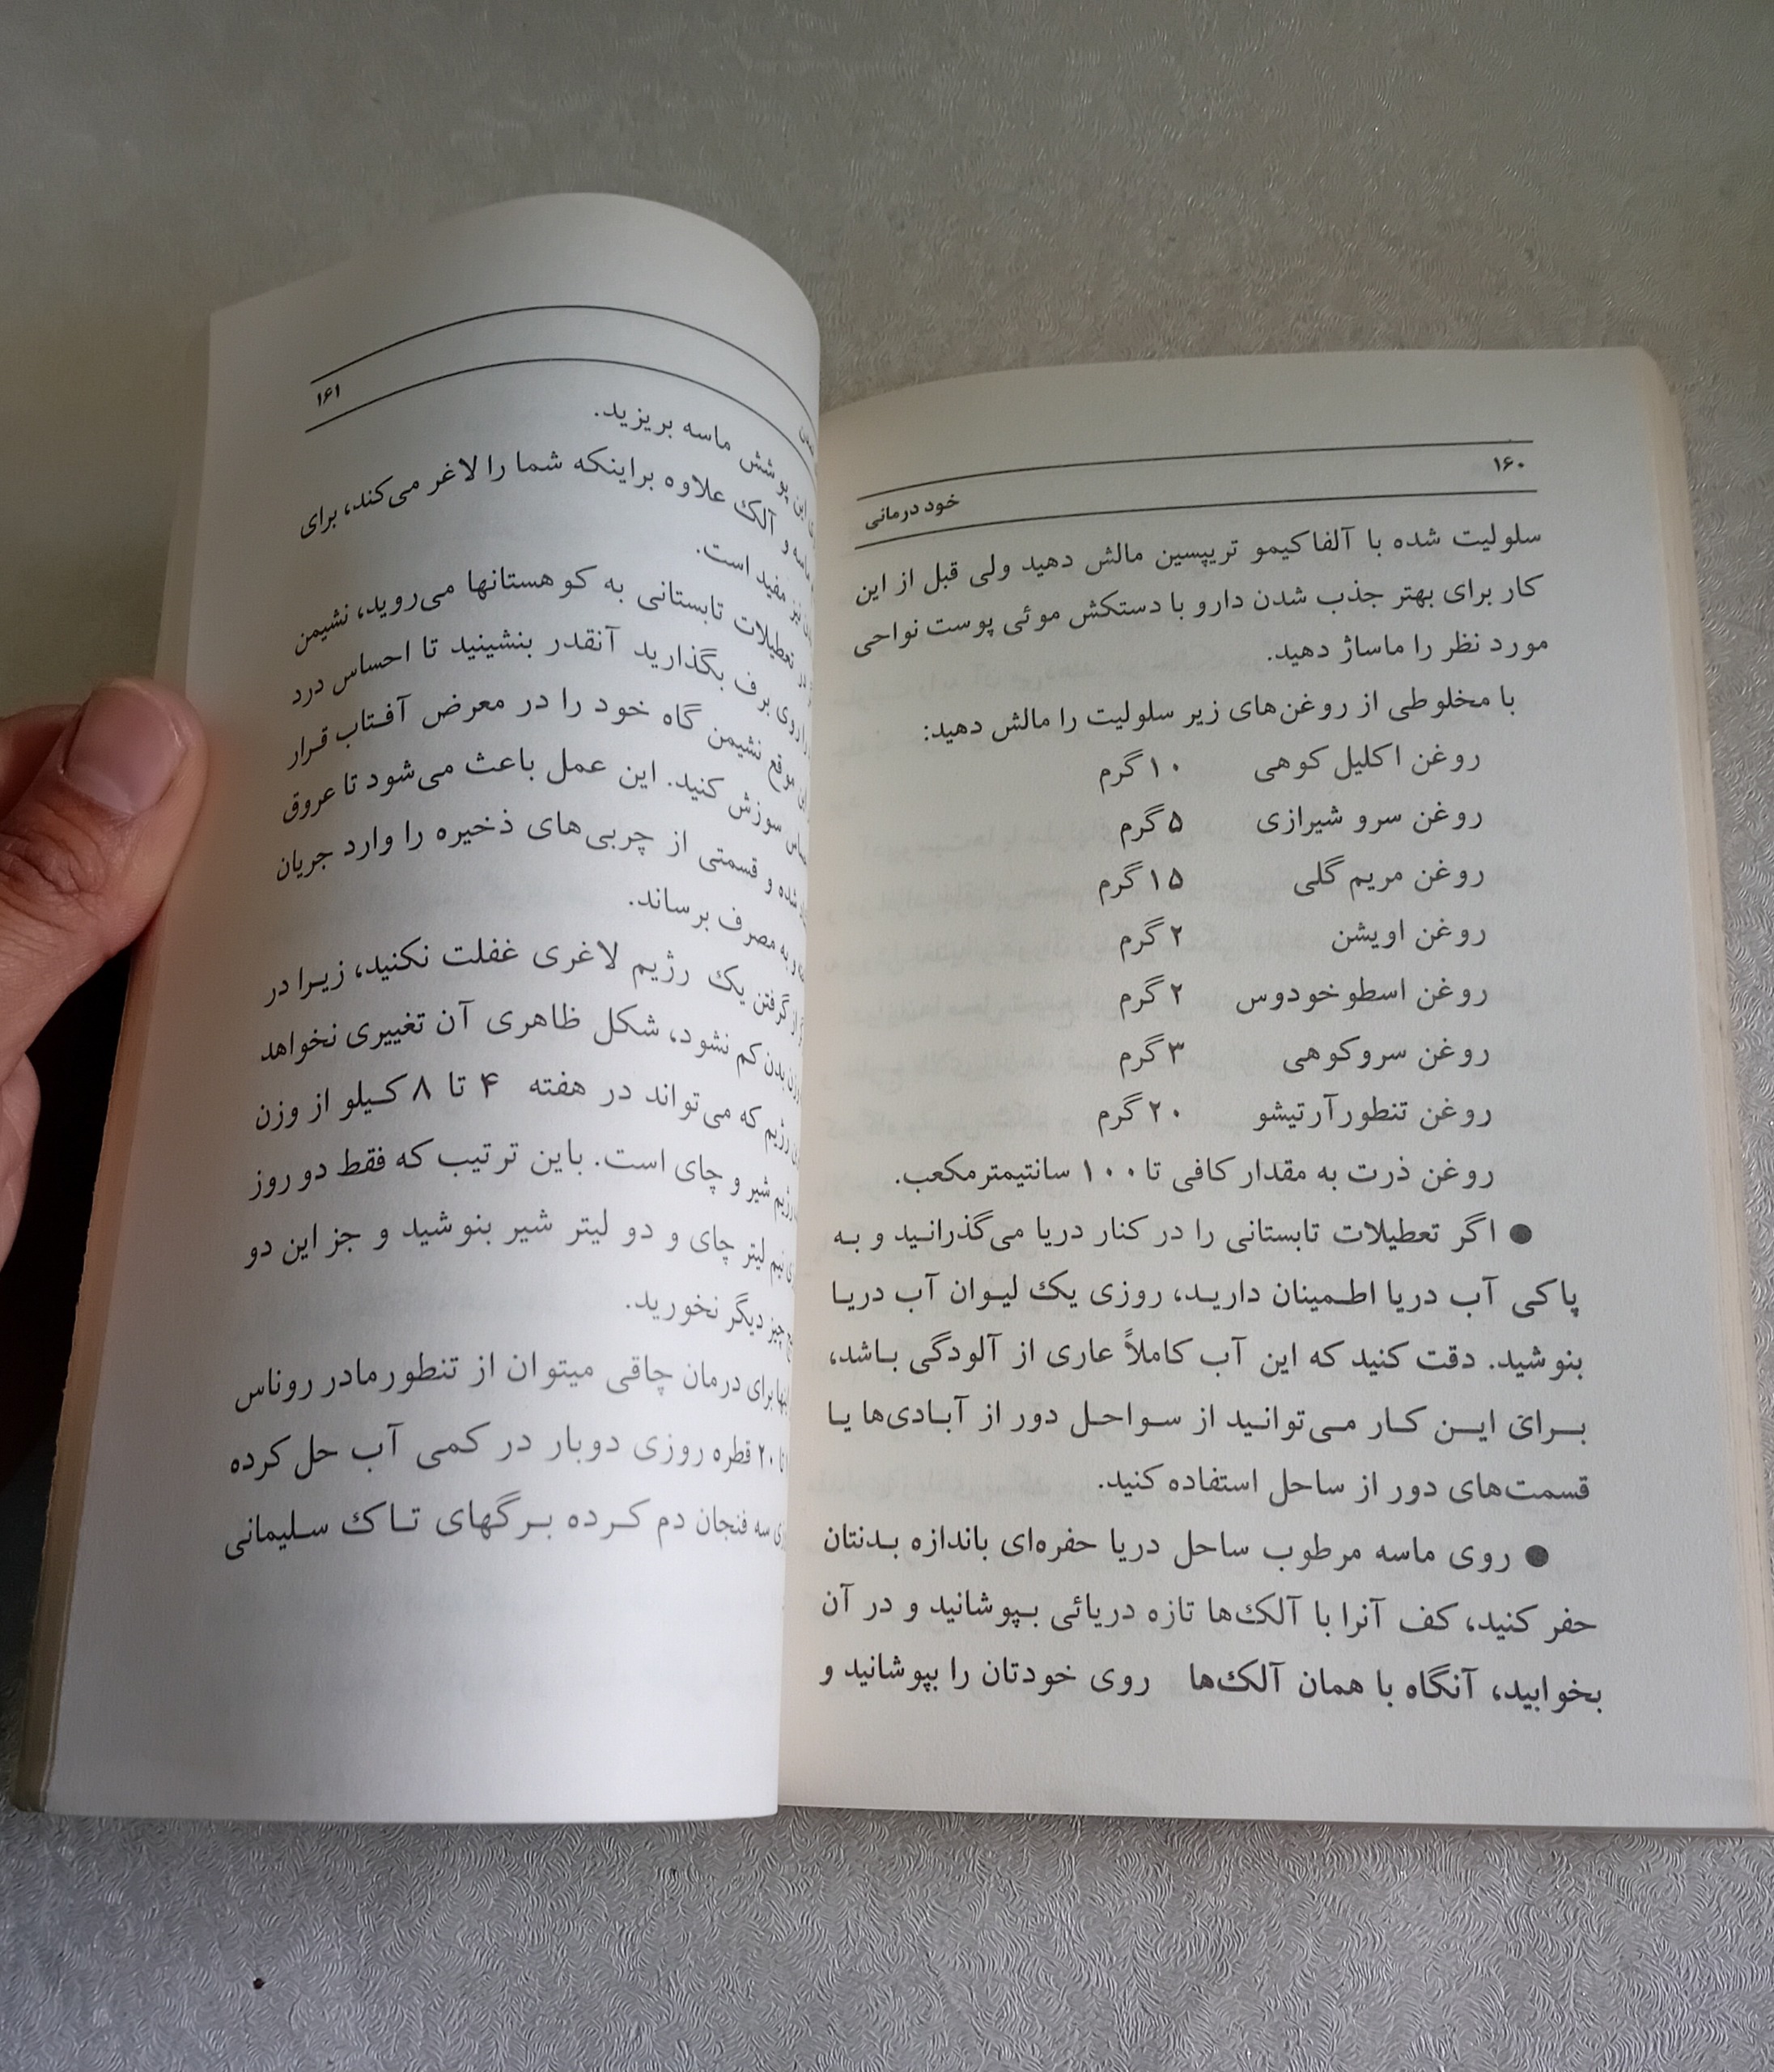 ۱۶۰
خود درمانی
سلولیت شده با آلفاکیمو تریپسین مالش دهید ولی قبل از این
کار برای بهتر جذب شدن دارو با دستکش موئی پوست نواحی
مورد نظر را ماساژ دهید.
با مخلوطی از روغن‌های زیر سلولیت را مالش دهید:
روغن اکلیل کوهی ۱۰ گرم
روغن سرو شیرازی ۵ گرم
روغن مریم گلی ۱۵ گرم
روغن اویشن ۲ گرم
روغن اسطوخودوس ۲ گرم
روغن سروکوهی ۳ گرم
روغن تنطورآرتیشو ۲۰ گرم
روغن ذرت به مقدار کافی تا ۱۰۰ سانتیمترمکعب.
● اگر تعطیلات تابستانی را در کنار دریا می‌گذرانید و به
پاکی آب دریا اطمینان دارید، روزی یک لیوان آب دریا
بنوشید. دقت کنید که این آب کاملاً عاری از آلودگی باشد،
برای این کار می‌توانید از سواحل دور از آبادی‌ها یا
قسمت‌های دور از ساحل استفاده کنید.
● روی ماسه مرطوب ساحل دریا حفره‌ای باندازه بدنتان
حفر کنید، کف آنرا با آلک‌ها تازه دریائی بپوشانید و در آن
بخوابید، آنگاه با همان آلک‌ها روی خودتان را بپوشانید و
۱۶۱
این پوشش ماسه بریزید.
ماسه و آلک علاوه براینکه شما را لاغر می‌کند، برای
نیز مفید است.
در تعطیلات تابستانی به کوهستانها می‌روید، نشیمن
را روی برف بگذارید آنقدر بنشینید تا احساس درد
موقع نشیمن گاه خود را در معرض آفتاب قرار
سوزش کنید. این عمل باعث می‌شود تا عروق
شده و قسمتی از چربی‌های ذخیره را وارد جریان
و به مصرف برساند.
از گرفتن یک رژیم لاغری غفلت نکنید، زیرا در
وزن بدن کم نشود، شکل ظاهری آن تغییری نخواهد
رژیم که می‌تواند در هفته ۴ تا ۸ کیلو از وزن
رژیم شیر و چای است. باین ترتیب که فقط دو روز
نیم لیتر چای و دو لیتر شیر بنوشید و جز این دو
چیز دیگر نخورید.
برای درمان چاقی میتوان از تنطورمادر روناس
تا ۲۰ قطره روزی دوبار در کمی آب حل کرده
سه فنجان دم کرده برگهای تاک سلیمانی